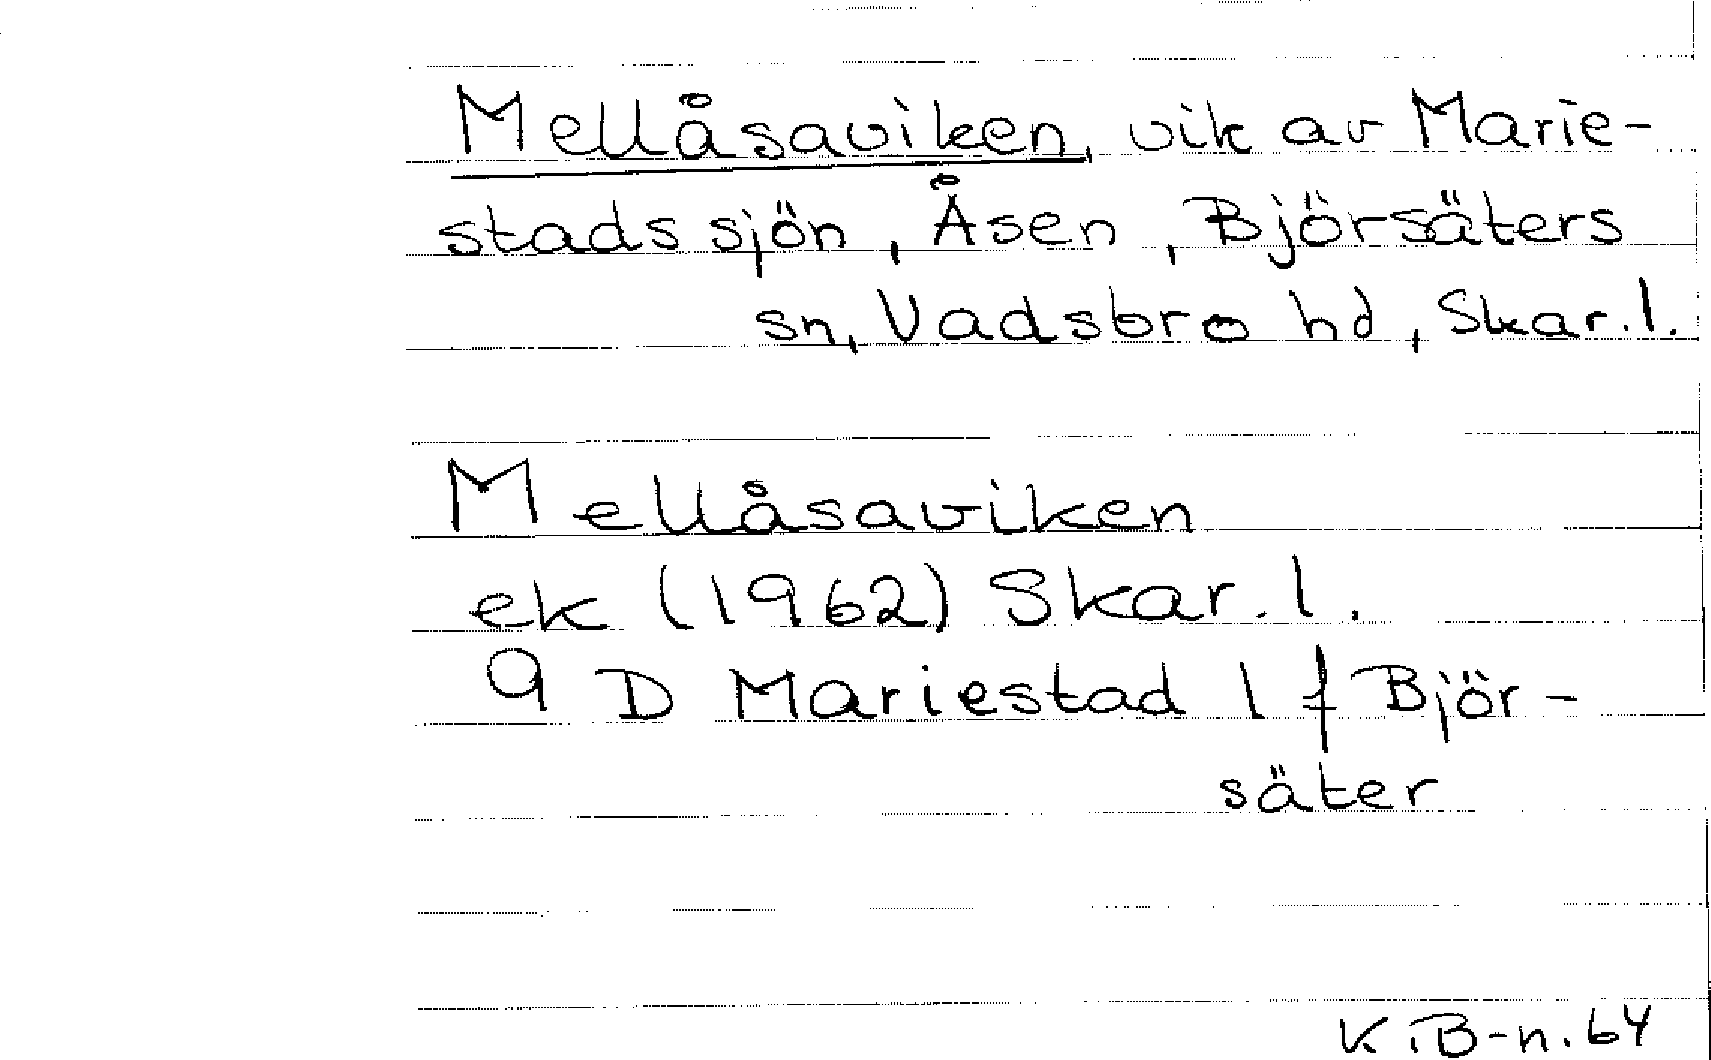 Mellåsaviken, vik av Marie-
stadssjön, Åsen, Björsäters
sn, Vadsbro hd, Skar. l.
Mellåsaviken
ek (1962) Skar. l.
9 D Mariestad 1 f Björ-
säter
K.B-n. 64